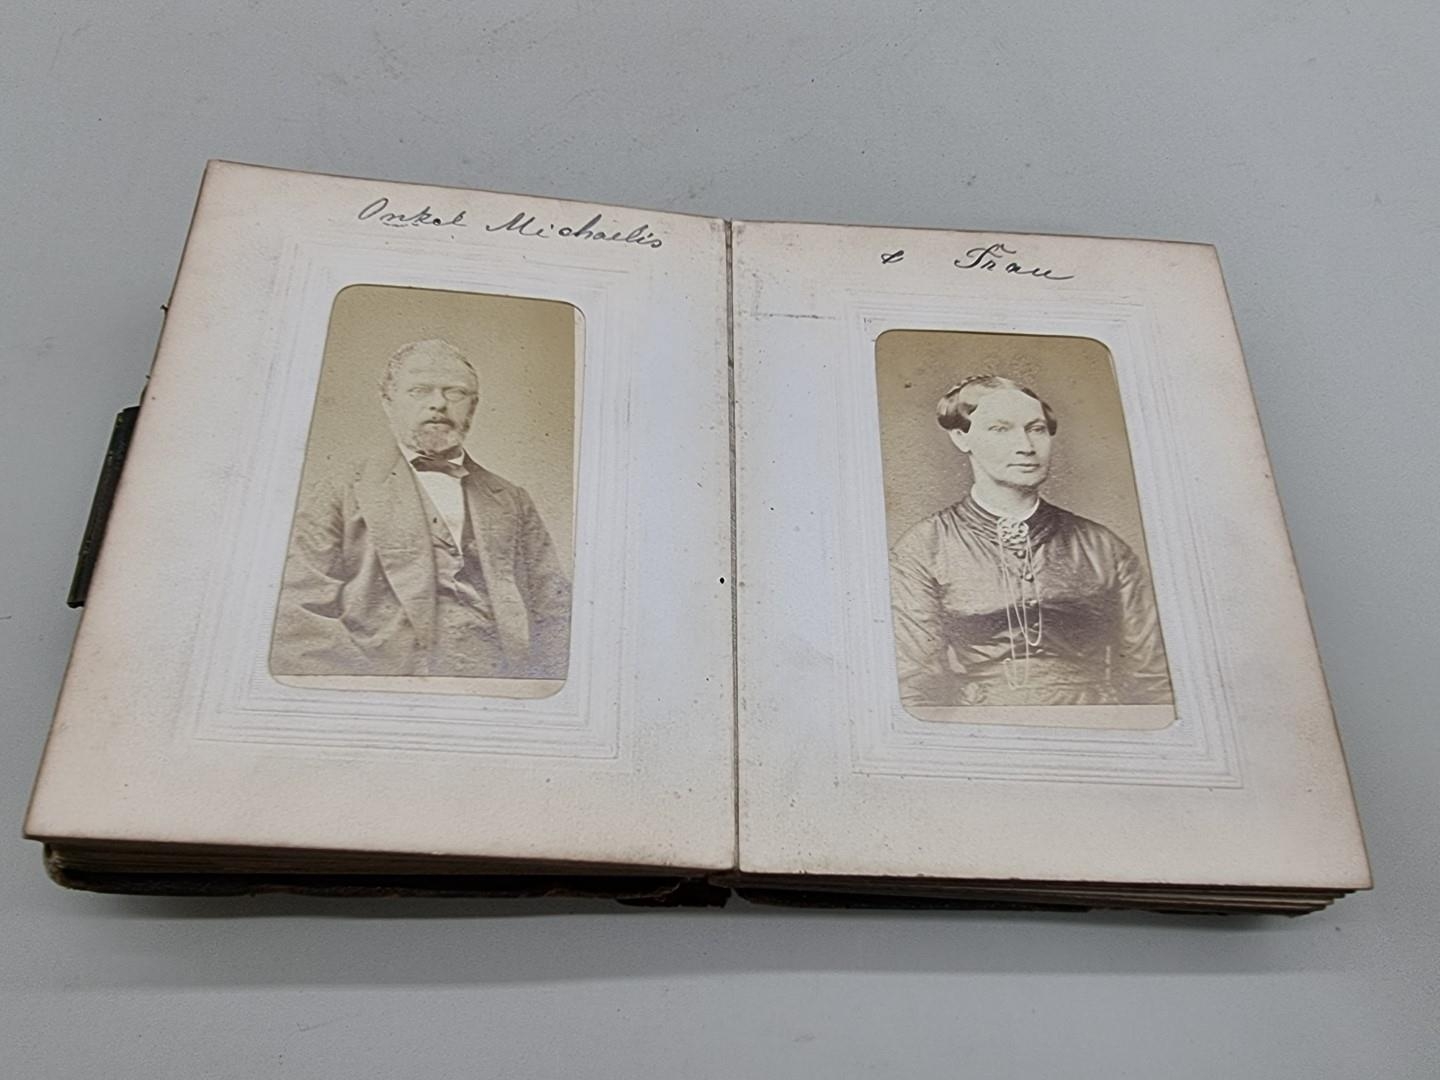 Onkel Michaelis
& Frau